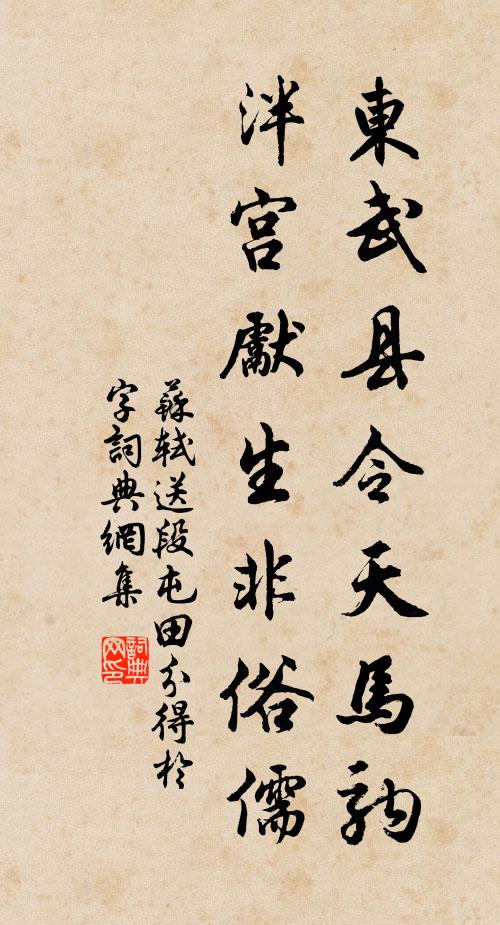 東武县令天馬駒
泮宫獻生非俗儒
蘇軾送段屯田分得於
字詞典網集
詞典
网印